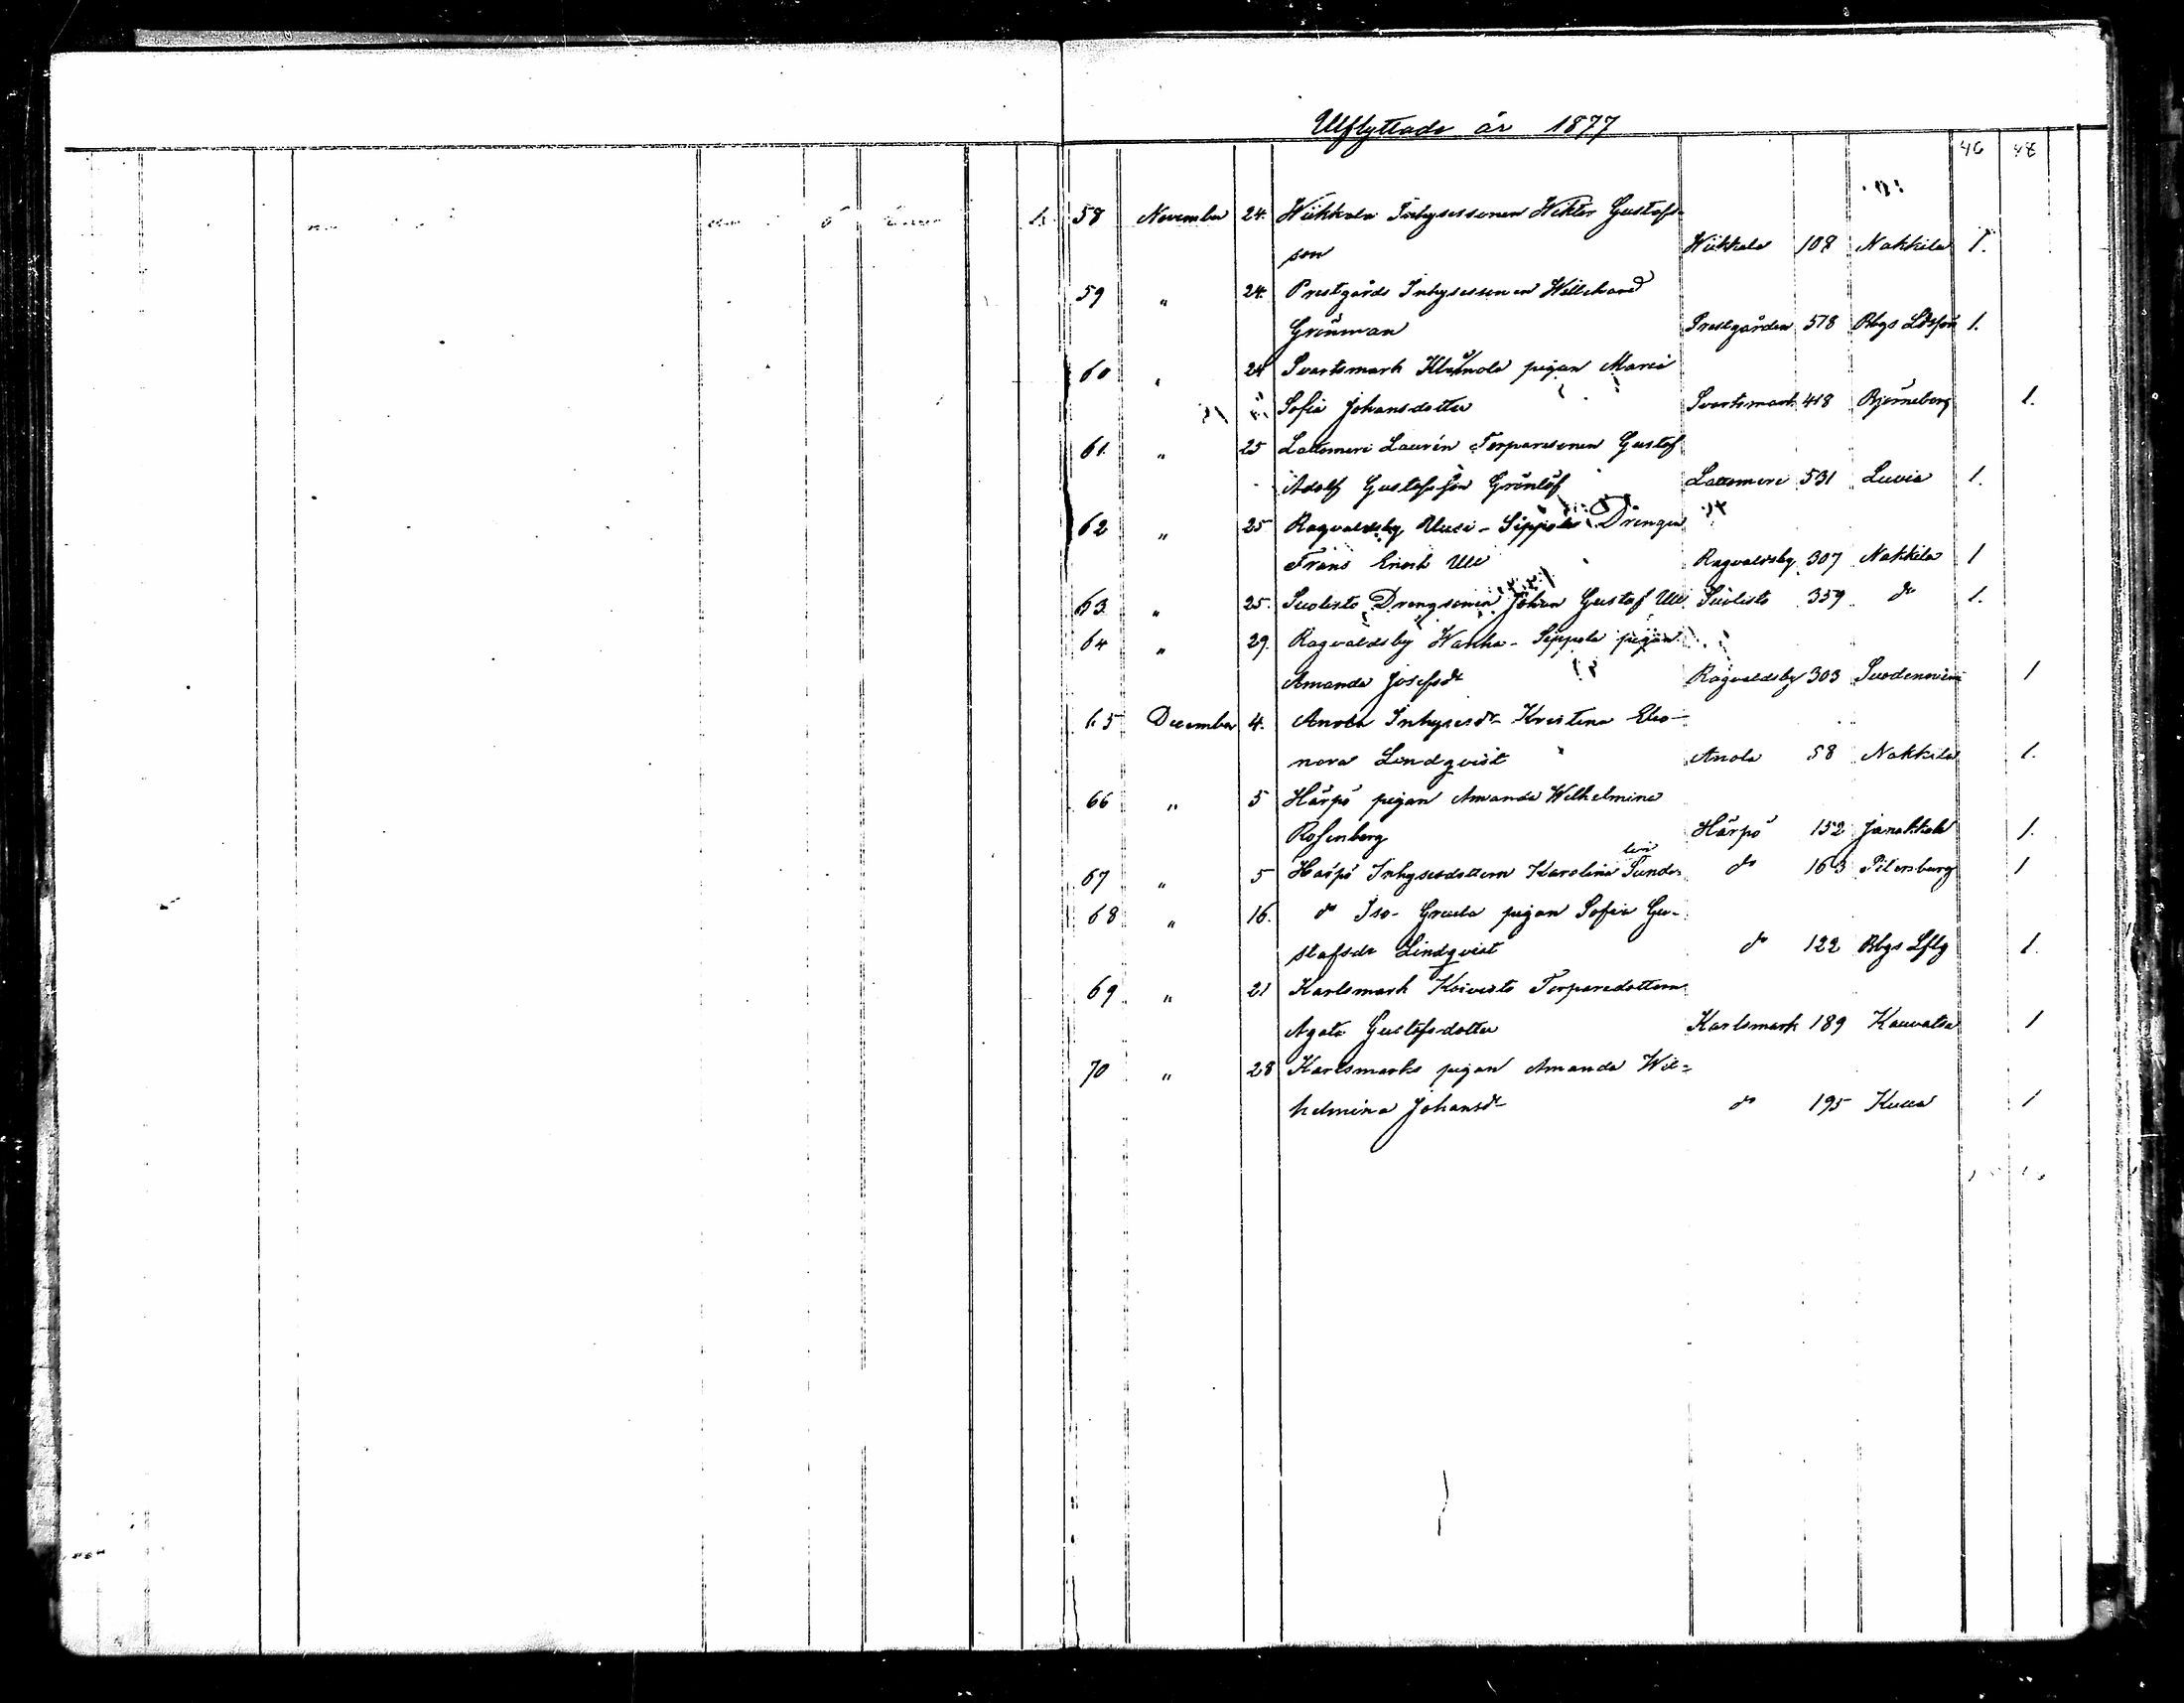 Utflyttade år 1877
46 48
58 November 24. Wiikkala Inhysessonen Wiktor Gustafs-
son Wiikkala 108 Nakkila 1.
59 " 24. Prestgårds Inhysessonen Willehard
Grönman Prestgården 578 Bbgs Ldsfös 1.
60 " 24 Svartsmark pigan Maria
Sofia Johansdotter Svartsmark 418 Björneborg 1.
61. " 25 Lattomeri Laurén Torparesonen Gustaf
Adolf Gustafsson Grönlöf Lattomeri 531 Luvia 1.
62 " 25 Ragvaldsby Uusi-Sippola Drengen
Frans Enok Ull Ragvaldsby 307 Nakkila 1
63 " 25. Suolisto Drengsonen Johan Gustaf Ull Suolisto 359 do 1.
64 " 29. Ragvaldsby Wanha-Sippola pigan
Amanda Josefsdr Ragvaldsby 303 Suodenniemi 1
65 December 4. Anola Inhysesdr Kristina Eleo-
nora Lindqvist Anola 58 Nakkila 1.
66 " 5 Härpö pigan Amanda Wilhelmina
Rosenberg Härpö 152 Janakkala 1.
67 " 5 Härpö Inhysesdottern Karolina do 163 Petersburg 1
68 " 16. do Iso-Greula pigan Sofia Gu-
stafsdr Lindqvist do 122 Bbgs Lfsg 1.
69 " 21 Karlsmark Koivisto Torparedottern
Agata Gustafsdotter Karlsmark 189 Kauvatsa 1
70 " 28 Karlsmarks pigan Amanda Wil-
helmina Johansdr do 195 1